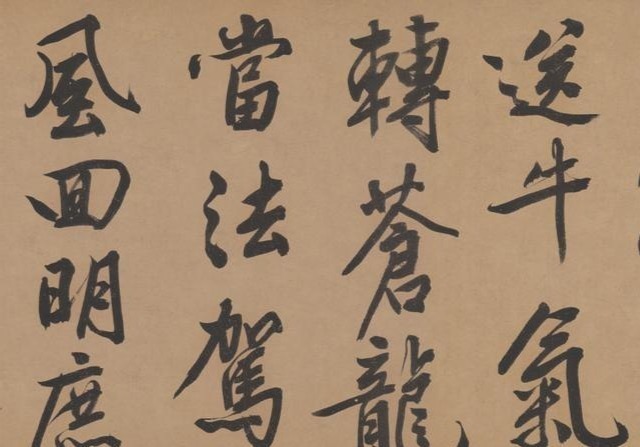 送牛氣
轉蒼龍
當法駕
風回明庶